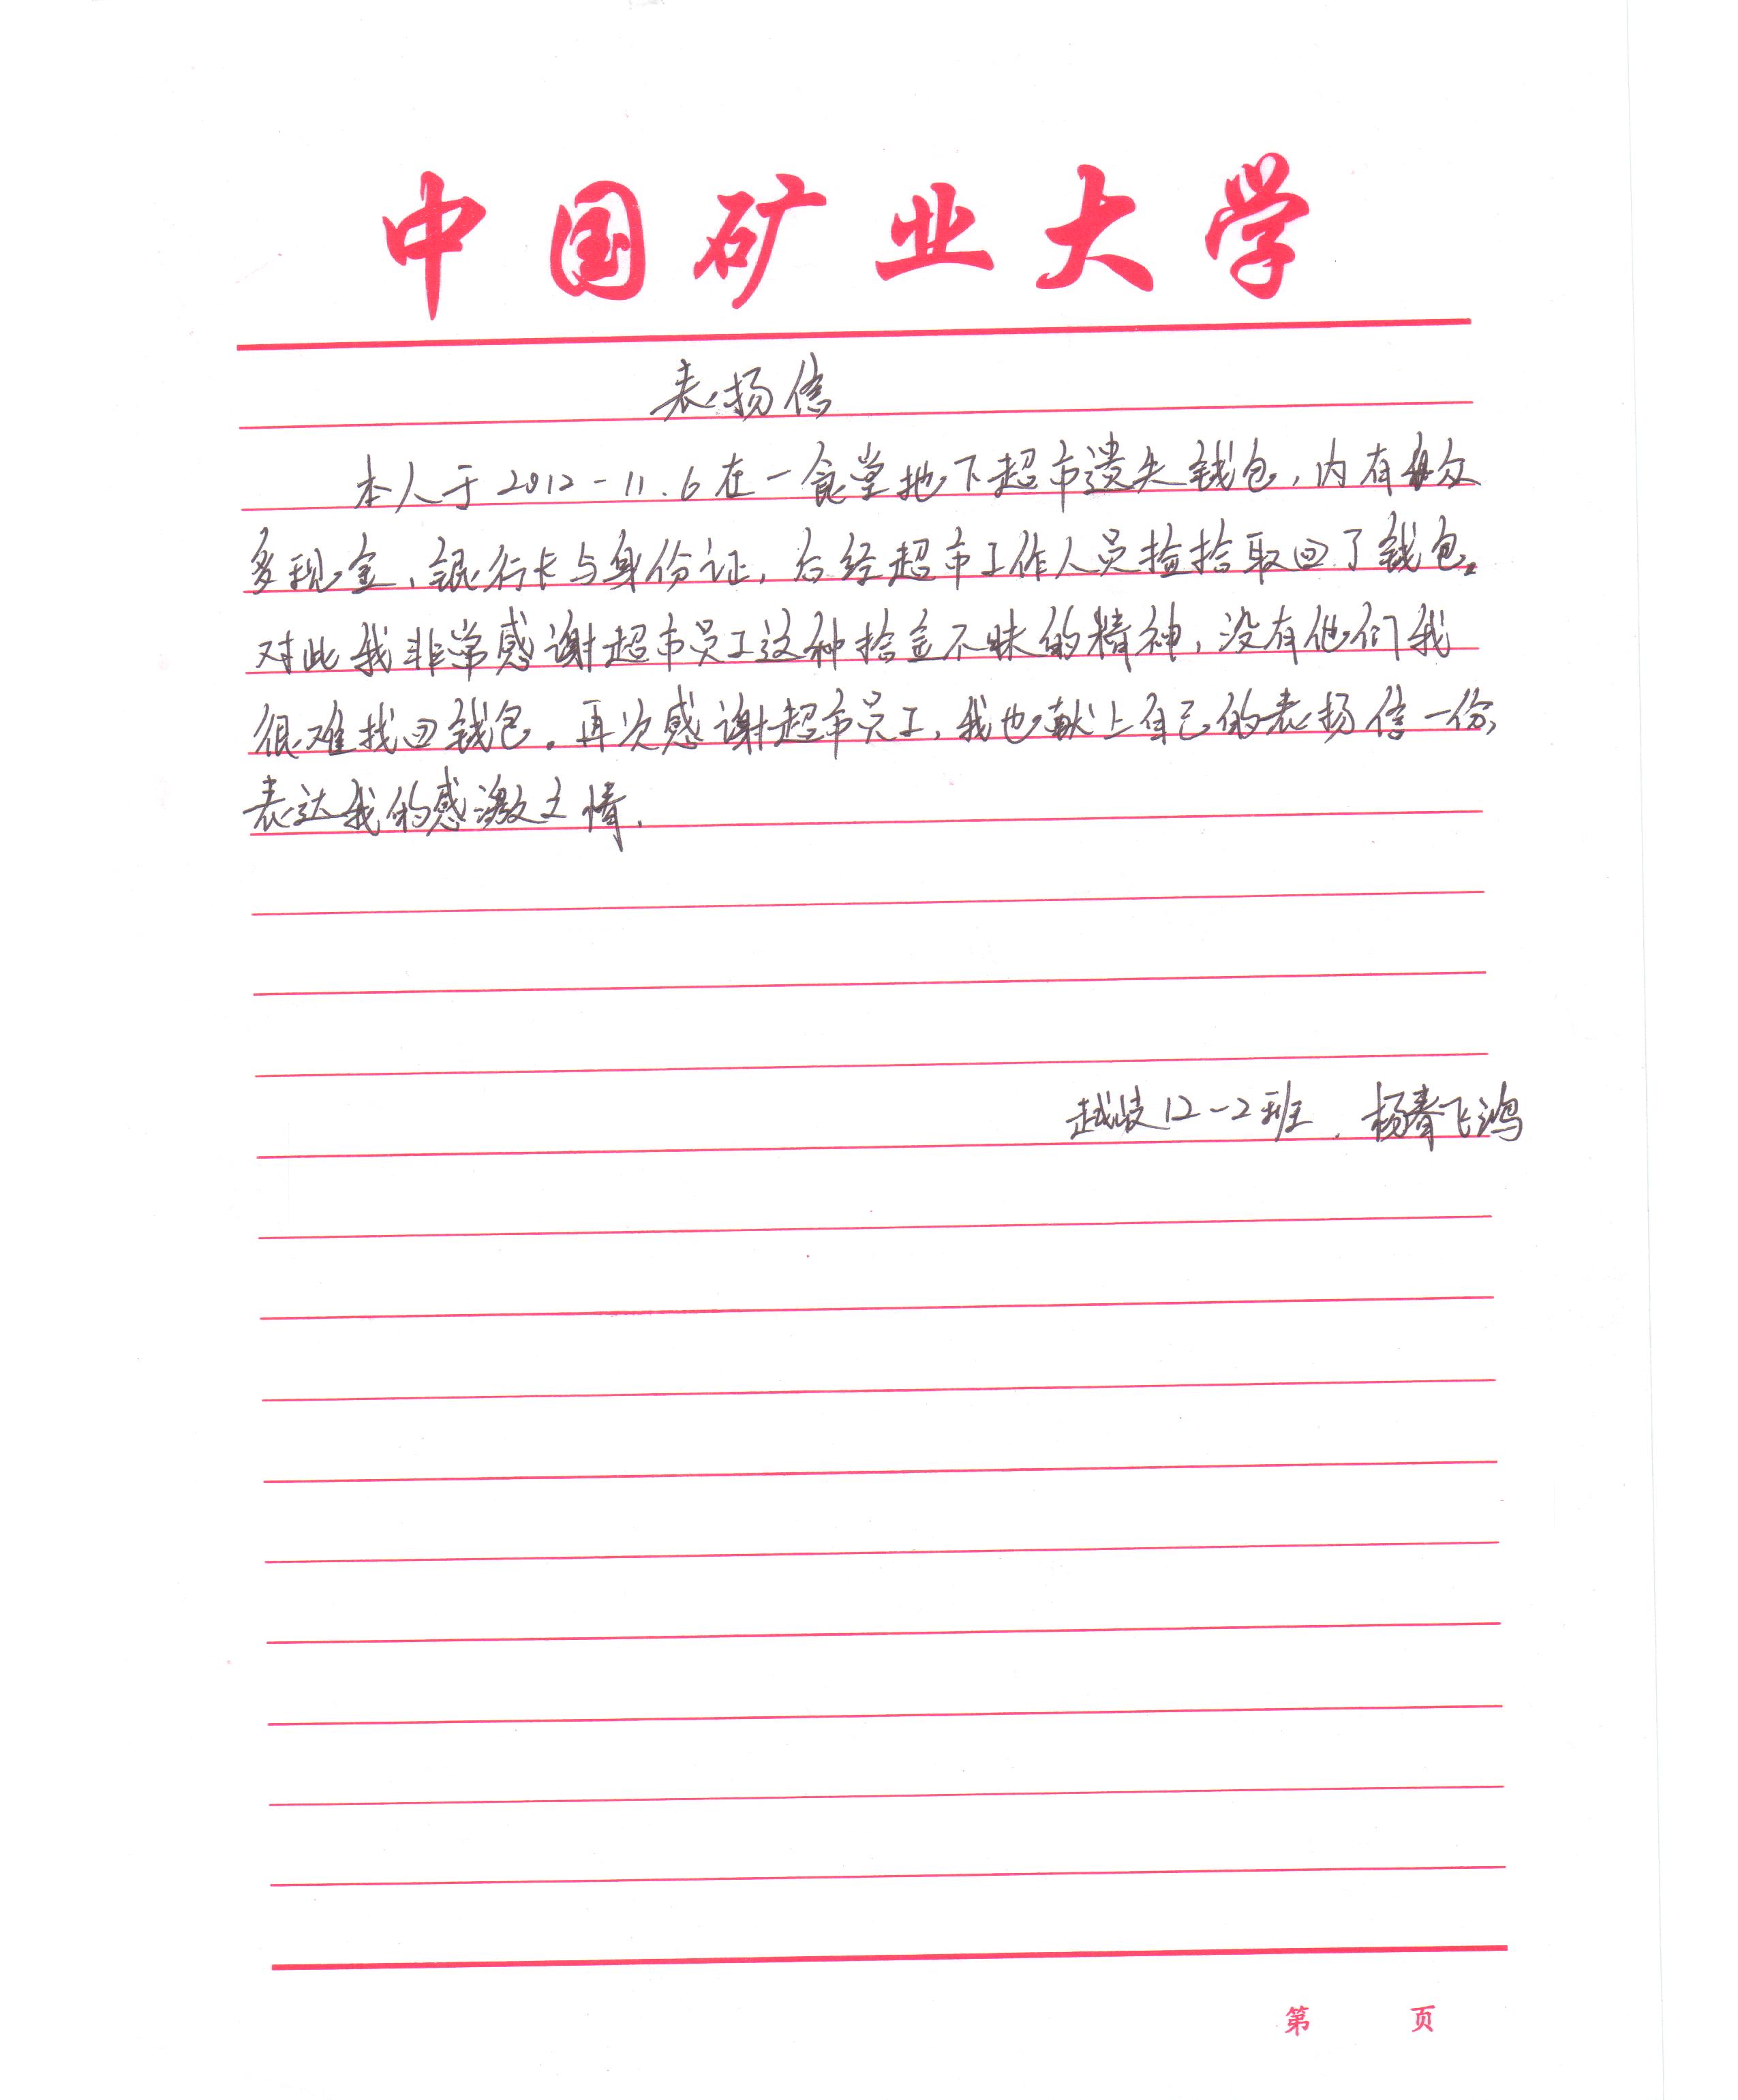 中国矿业大学
表扬信
本人于2012-11.6在一食堂地下超市遗失钱包,内有众
多现金、银行卡与身份证,后经超市工作人员捡拾取回了钱包。
对此我非常感谢超市员工这种拾金不昧的精神,没有他们我
很难找回钱包。再次感谢超市员工,我也献上自己的表扬信一份,
表达我的感激之情.
越崎12-2班.杨春飞鸿
第 页